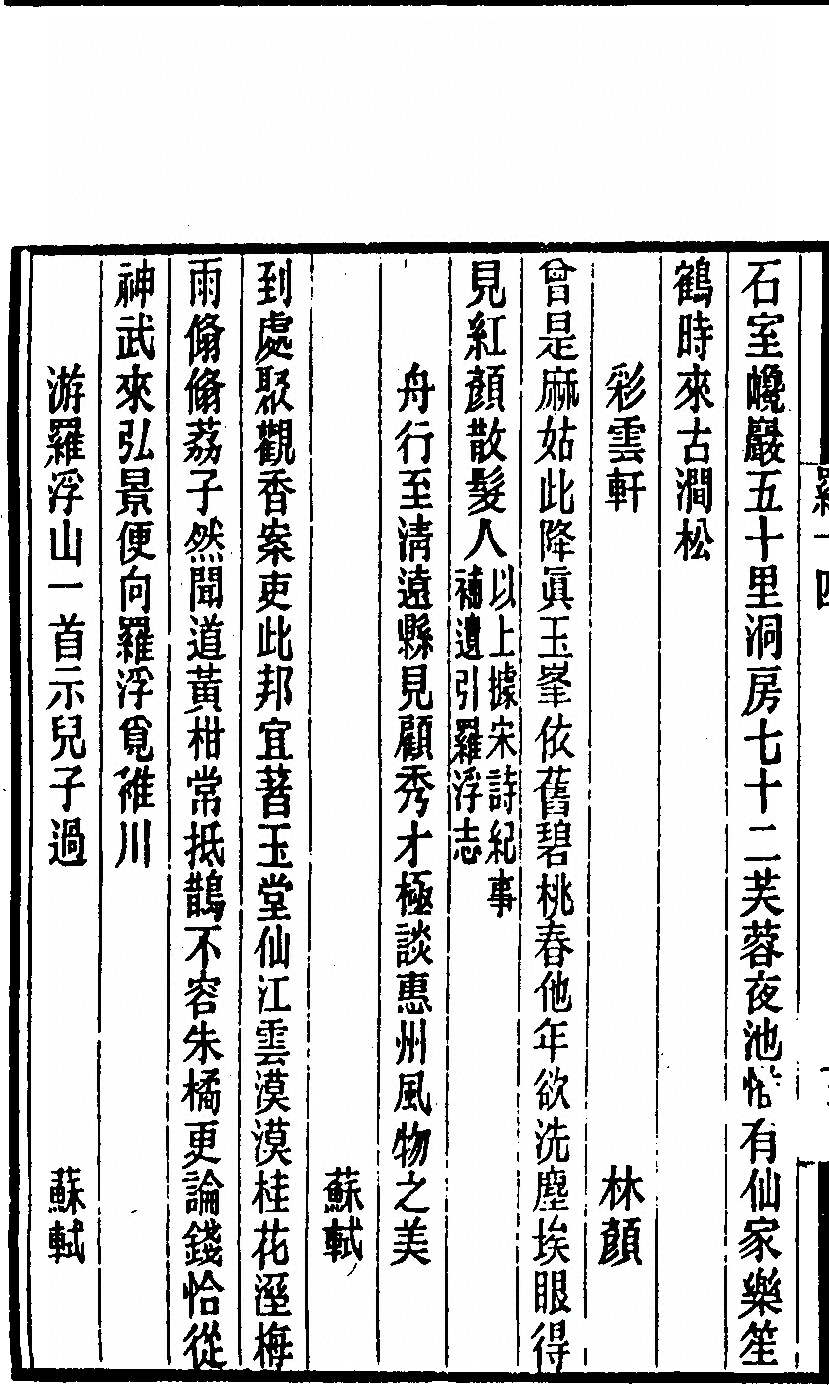 羅十四
石室巉巖五十里洞房七十二芙蓉夜池恰有仙家樂笙
鶴時來古澗松
彩雲軒 林顏
曾是麻姑此降眞玉峯依舊碧桃春他年欲洗塵埃眼得
見紅顏散髮人以上據宋詩紀事
補遺引羅浮志
舟行至清遠縣見顧秀才極談惠州風物之美
蘇軾
到處聚觀香案吏此邦宜著玉堂仙江雲漠漠桂花溼梅
雨翛翛荔子然聞道黃柑常抵鵲不容朱橘更論錢恰從
神武來弘景便向羅浮覓稚川
游羅浮山一首示兒子過 蘇軾